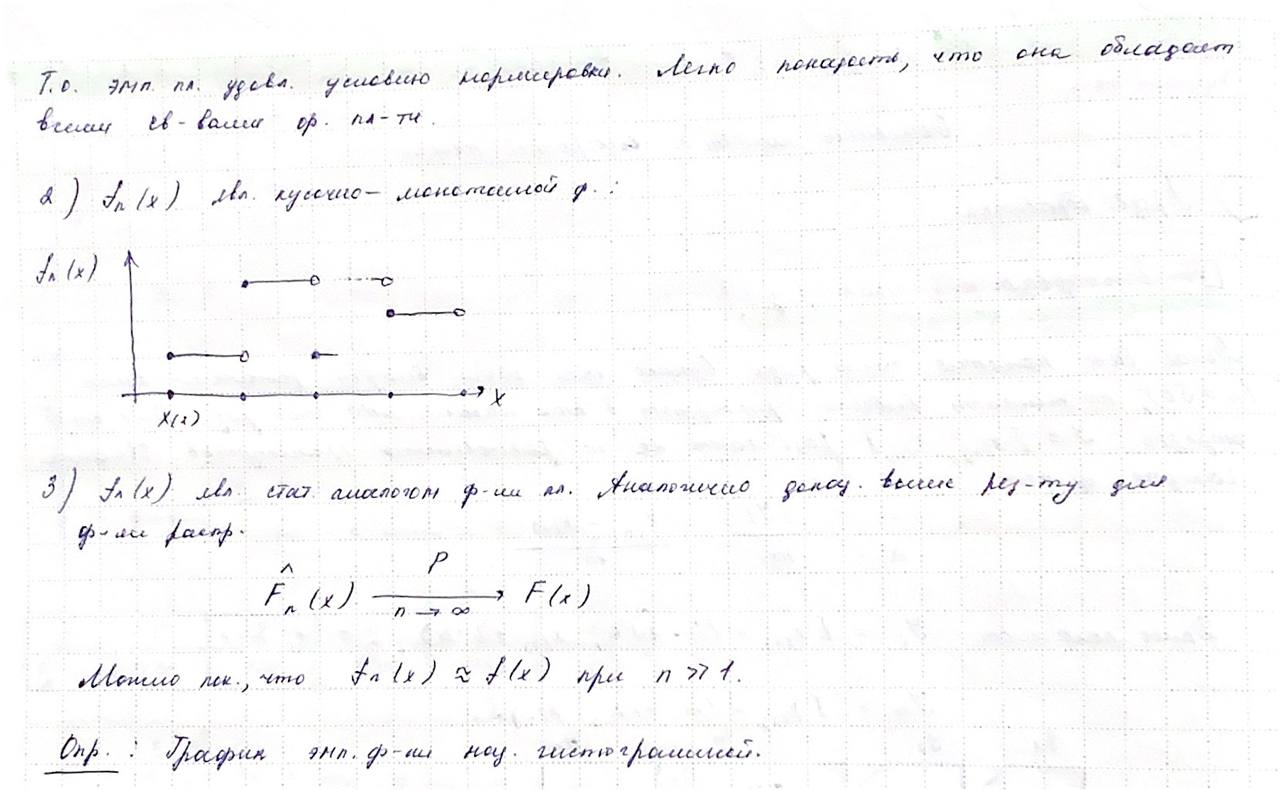 Т.о. эмп. пл. удовл. условию нормировки. Легко показать, что она обладает
всеми св-вами ф. пл-ти.
2) fₙ(x) явл. кусочно-монотонной ф.:
fₙ(x)
x
X(1)
3) fₙ(x) явл. стат. аналогом ф-ии пл. Аналогично доказ. выше рез-ту для
ф-ии распр.
F̂ₙ(x) —P, n→∞→ F(x)
Можно пок., что fₙ(x) ≈ f(x) при n >> 1.
Опр.: График эмп. ф-ии наз. гистограммой.